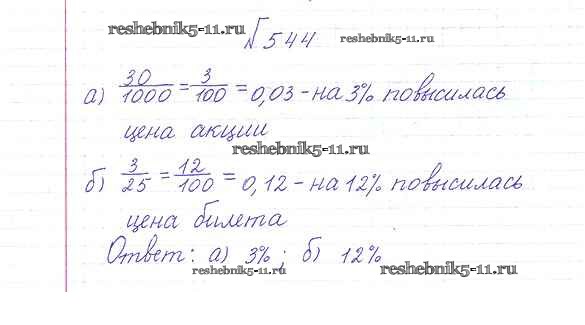 reshebnik5-11.ru
№544
reshebnik5-11.ru
а) 30/1000 = 3/100 = 0,03 - на 3% повысилась
цена акции
reshebnik5-11.ru
б) 3/25 = 12/100 = 0,12 - на 12% повысилась
цена билета
Ответ: а) 3%; б) 12%
reshebnik5-11.ru
reshebnik5-11.ru